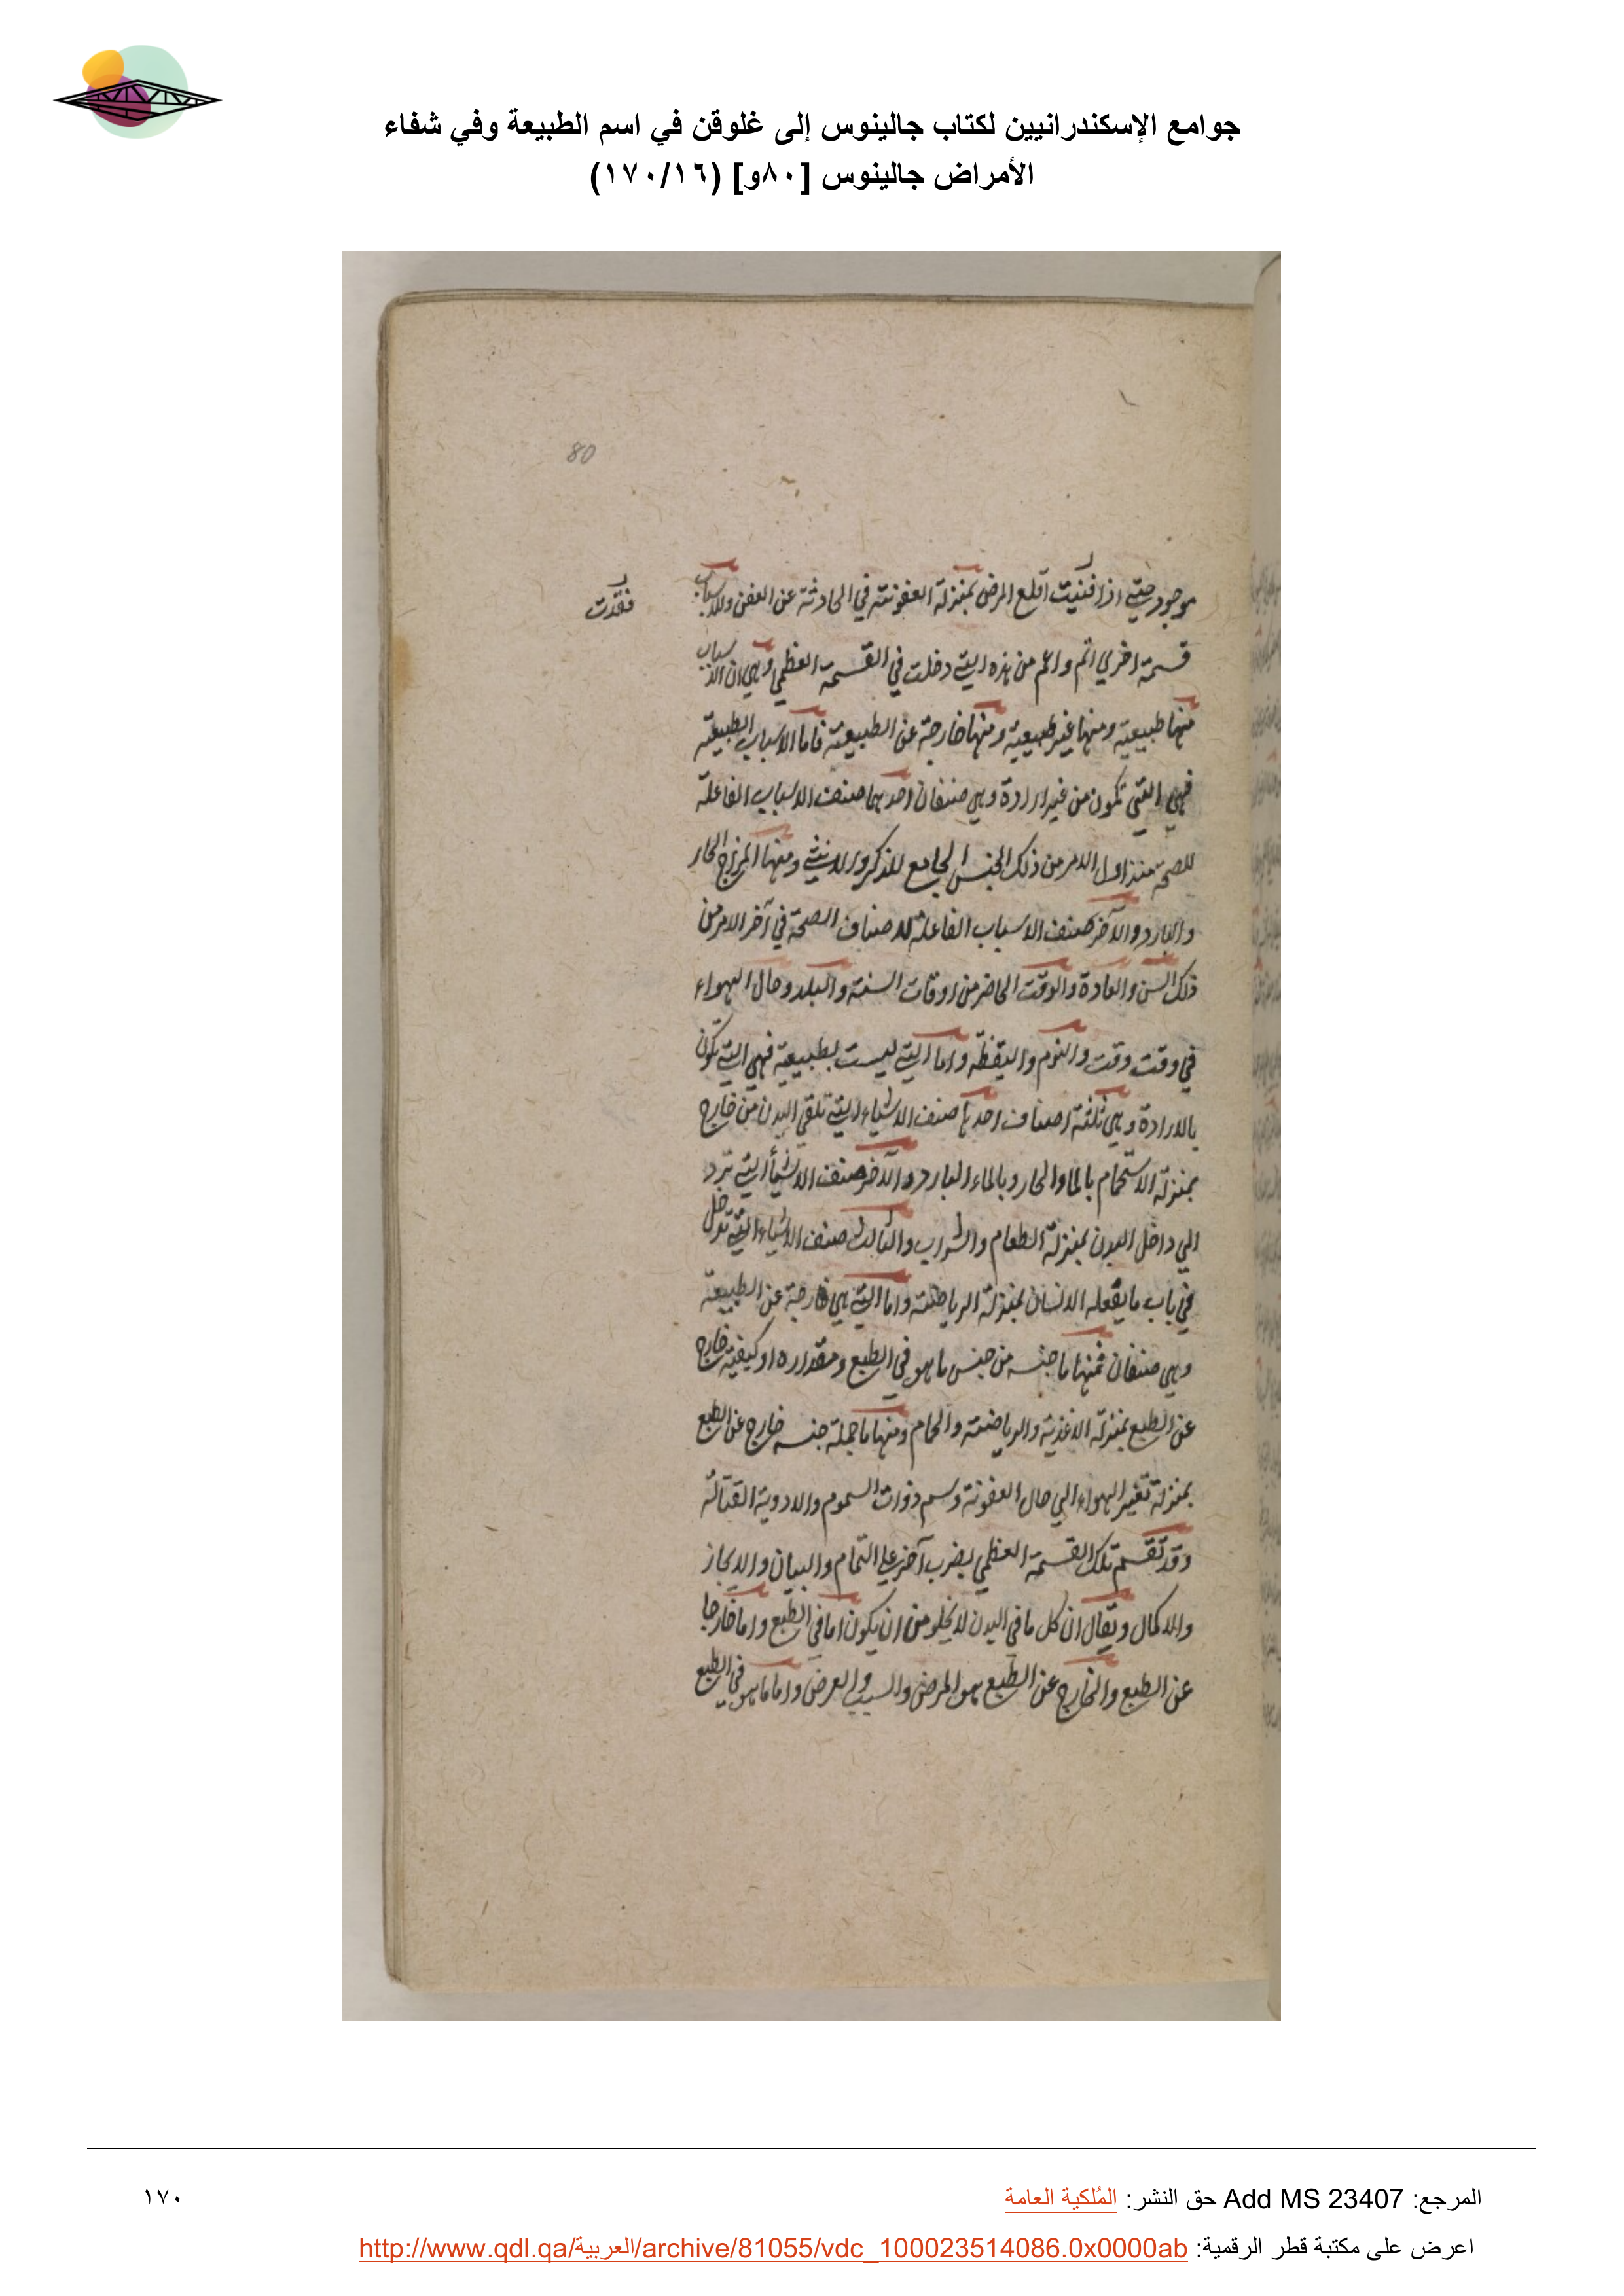 جوامع الإسكندرانيين لكتاب جالينوس إلى غلوقن في اسم الطبيعة وفي شفاء
الأمراض جالينوس [٨٠و] (١٧٠/١٦)
80
موجود حتي اذا فنيت اقلع المرض بمنزلة العفونة في الحادثة عن العفن وللاسباب
فقدت
قسمة اخري اتم واعم من هذه التي دخلت في القسمة العظمي وهي ان الاسباب
منها طبيعية ومنها غير طبيعية ومنها خارجة عن الطبيعة فاما الاسباب الطبيعية
فهي التي تكون من غير ارادة وهي صنفان احدهما صنف الاسباب الفاعلة
للصحة منذ اول الامر من ذلك الجنس الجامع للذكر والانثي ومنها المزاج الحار
والبارد والآخر صنف الاسباب الفاعلة لاصناف الصحة في آخر الامر من
ذلك السن والعادة والوقت الحاضر من اوقات السنة والبلد وحال الهواء
في وقت وقت والنوم واليقظه واما التي ليست بطبيعية فهي التي تكون
بالارادة وهي ثلثة اصناف احدها صنف الاشياء التي تلقي البدن من خارج
بمنزلة الاستحمام بالماء الحار وبالماء البارد والآخر صنف الاشيأ التي ترد
الي داخل البدن بمنزلة الطعام والشراب والثالث صنف الاشياء التي تدخل
في باب ما يفعله الانسان بمنزلة الرياضة واما التي هي خارجة عن الطبيعة
وهي صنفان فمنها ما جنسه من جنس ما هو في الطبع ومقداره او كيفيته خارج
عن الطبع بمنزلة الاغذية والرياضة والحمام ومنها ما جملة جنسه خارج عن الطبع
بمنزلة تغير الهواء الي حال العفونة وسم ذوات السموم والادوية القتالة
وقد تقسم تلك القسمة العظمي بضرب آخر علي التمام والبيان والايجاز
والاكمال ويقال ان كل ما في البدن لا يخلو من ان يكون اما في الطبع واما خارجا
عن الطبع والخارج عن الطبع هو المرض والسبب والعرض واما ما هو في الطبع
المرجع: Add MS 23407 حق النشر: المُلكية العامة
١٧٠
اعرض على مكتبة قطر الرقمية: http://www.qdl.qa/العربية/archive/81055/vdc_100023514086.0x0000ab